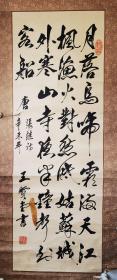 月落烏啼霜滿天江
楓漁火對愁眠姑蘇城
外寒山寺夜半鐘聲到
客船 唐 張繼詩
辛未年
王 書